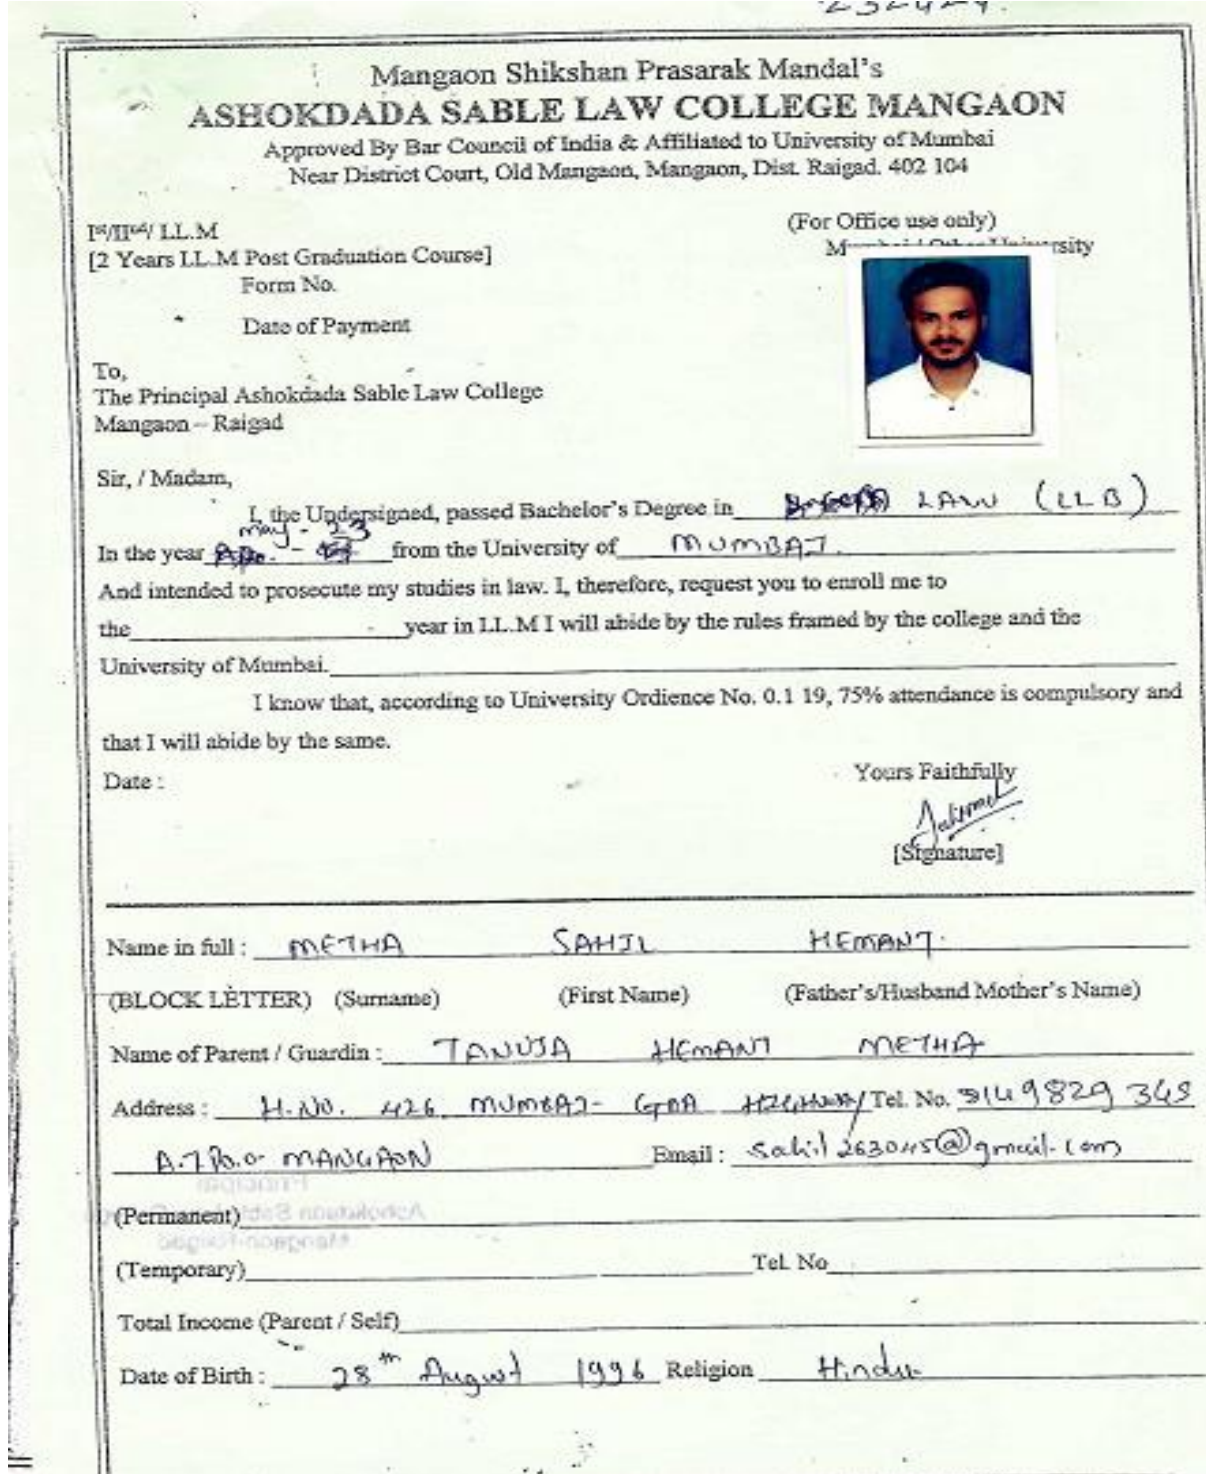 Mangaon Shikshan Prasarak Mandal's
ASHOKDADA SABLE LAW COLLEGE MANGAON
Approved By Bar Council of India & Affiliated to University of Mumbai
Near District Court, Old Mangaon, Mangaon, Dist. Raigad. 402 104
Ist/IInd/ LL.M
(For Office use only)
[2 Years LL.M Post Graduation Course]
Form No.
Date of Payment
To,
The Principal Ashokdada Sable Law College
Mangaon – Raigad
Sir, / Madam,
I, the Undersigned, passed Bachelor's Degree in LAW (LLB)
may - 23
In the year from the University of MUMBAI.
And intended to prosecute my studies in law. I, therefore, request you to enroll me to
the year in LL.M I will abide by the rules framed by the college and the
University of Mumbai.
I know that, according to University Ordience No. 0.1 19, 75% attendance is compulsory and
that I will abide by the same.
Date :
Yours Faithfully
[Signature]
Name in full : METHA SAHIL HEMANT.
(BLOCK LETTER) (Surname) (First Name) (Father's/Husband Mother's Name)
Name of Parent / Guardin : TANUJA HEMANT METHA
Address : H.NO. 426 MUMBAI- GOA HIGHWAY Tel. No.
MANGAON Email : sahil263045@gmail.com
(Permanent)
(Temporary) Tel. No
Total Income (Parent / Self)
Date of Birth : 28th August 1996 Religion Hindu